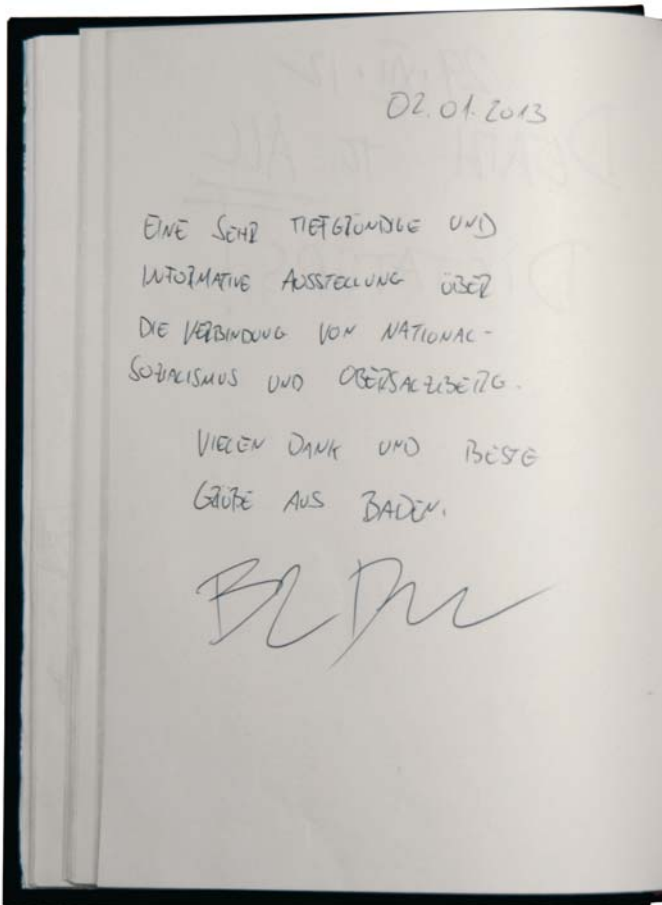 02.01.2013
EINE SEHR TIEFGRÜNDIGE UND
INFORMATIVE AUSSTELLUNG ÜBER
DIE VERBINDUNG VON NATIONAL-
SOZIALISMUS UND OBERSALZBERG.
VIELEN DANK UND BESTE
GRÜßE AUS BADEN.